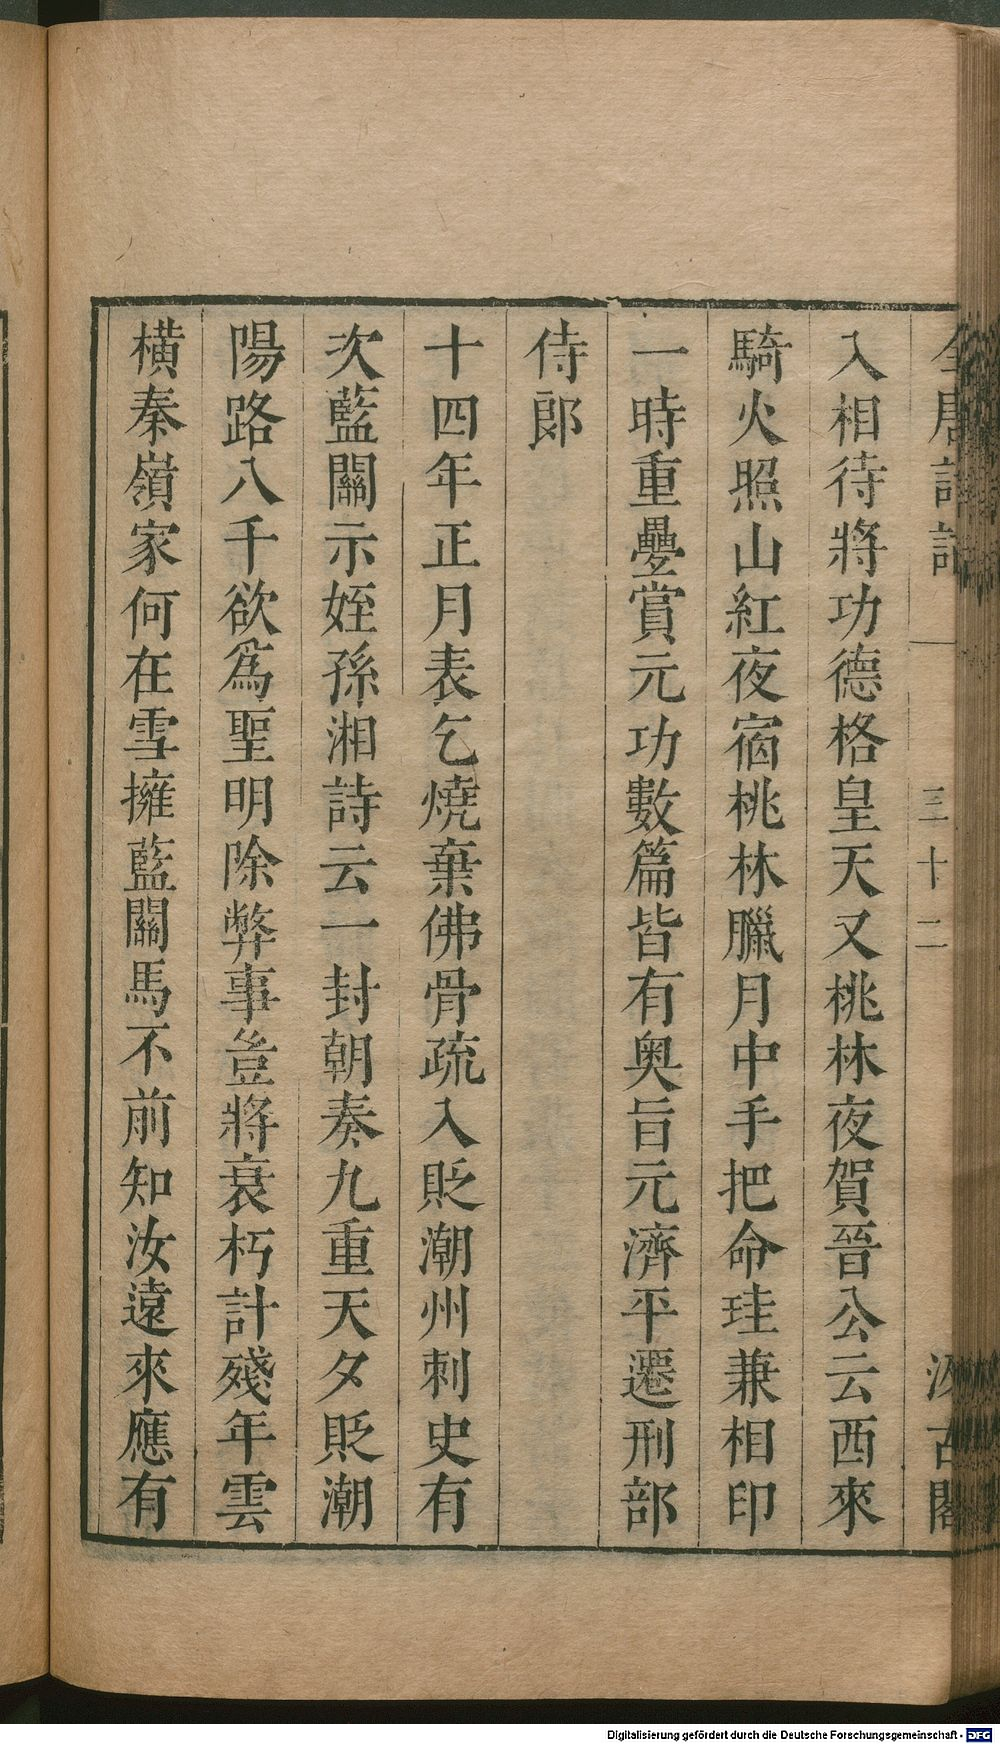 入相待將功德格皇天又桃林夜賀晉公云西來
騎火照山紅夜宿桃林臘月中手把命珪兼相印
一時重疊賞元功數篇皆有奥旨元濟平遷刑部
侍郎
十四年正月表乞燒棄佛骨疏入貶潮州刺史有
次藍關示姪孫湘詩云一封朝奏九重天夕貶潮
陽路八千欲爲聖明除弊事豈將衰朽計殘年雲
橫秦嶺家何在雪擁藍關馬不前知汝遠來應有
三十二
Digitalisierung gefördert durch die Deutsche Forschungsgemeinschaft - DFG